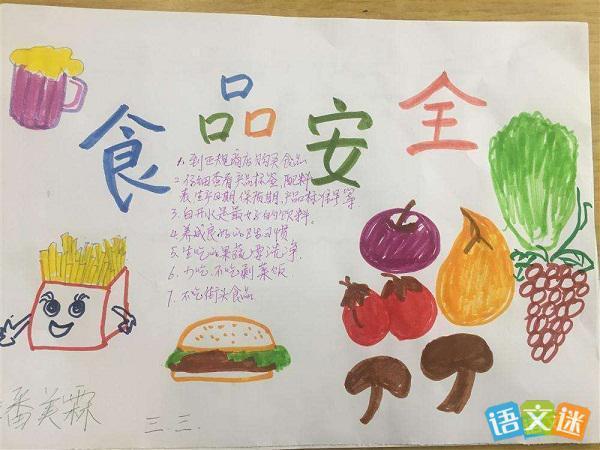 食品安全
1. 到正规商店购买食品
2. 仔细查看产品标签,配料
表生产日期,保质期,产品材保存等
3. 白开水是最好的饮料.
4. 养成良好的卫生习惯
5. 生吃瓜果蔬要洗净.
6. 少吃、不吃剩菜饭
7. 不吃街头食品
潘美霖
三.三.
语文迷